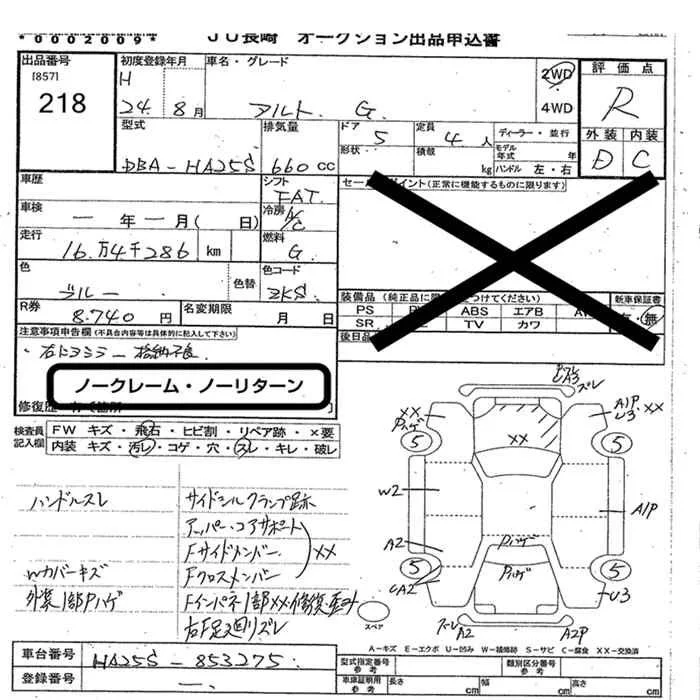 *0002009*
JU長崎 オークション出品申込書
出品番号
[857]
218
初度登録年月
H
24. 8月
車名・グレード
アルト G.
2WD
4WD
評価点
R
外装 内装
D C
型式
DBA-HA25S
排気量
660cc
ドア
5
形状
定員
4人
積載
kg
ディーラー・並行
モデル年式 年
ハンドル 左・右
車歴
シフト
FAT.
セー ポイント(正常に機能するものに限ります)
車検
一年一月( 日)
冷房
A/C
走行
16万4千286 km
燃料
G.
色
ブルー
色替
色コード
ZKS
装備品(純正品に限 つけてください)
新車保証書
PS ABS エアB
SR TV カワ
有・無
R券
8.740円
名変期限
月 日
後日品
注意事項申告欄(不具合内容等は具体的に記入して下さい)
右ドアミラー 格納不良
ノークレーム・ノーリターン
修復歴
検査員記入欄
FW キズ・飛石・ヒビ割・リペア跡・×要
内装 キズ・汚レ・コゲ・穴・スレ・キレ・破レ
ハンドルスレ
サイドシルクランプ跡
アッパーコアサポート
Fサイドメンバー
XX
Wカバーキズ
Fクロスメンバー
外装1部Pハゲ
Fインパネ1部XX・修復歴
右F足廻リズレ
ズレ
A3
XX
Pハゲ
A1P
U3・XX
5
5
XX
W2
A1P
A2
Pハゲ
Pハゲ
5
5
CA2
U3
スペア
ズレ
A2
A2P
A-キズ E-エクボ U-凹み W-補修跡 S-サビ C-腐食 XX-交換済
車台番号
HA25S-853275
登録番号
一.
型式指定番号
参考
類別区分番号
参考
車庫証明用
参考
長さ cm
幅 cm
高さ cm